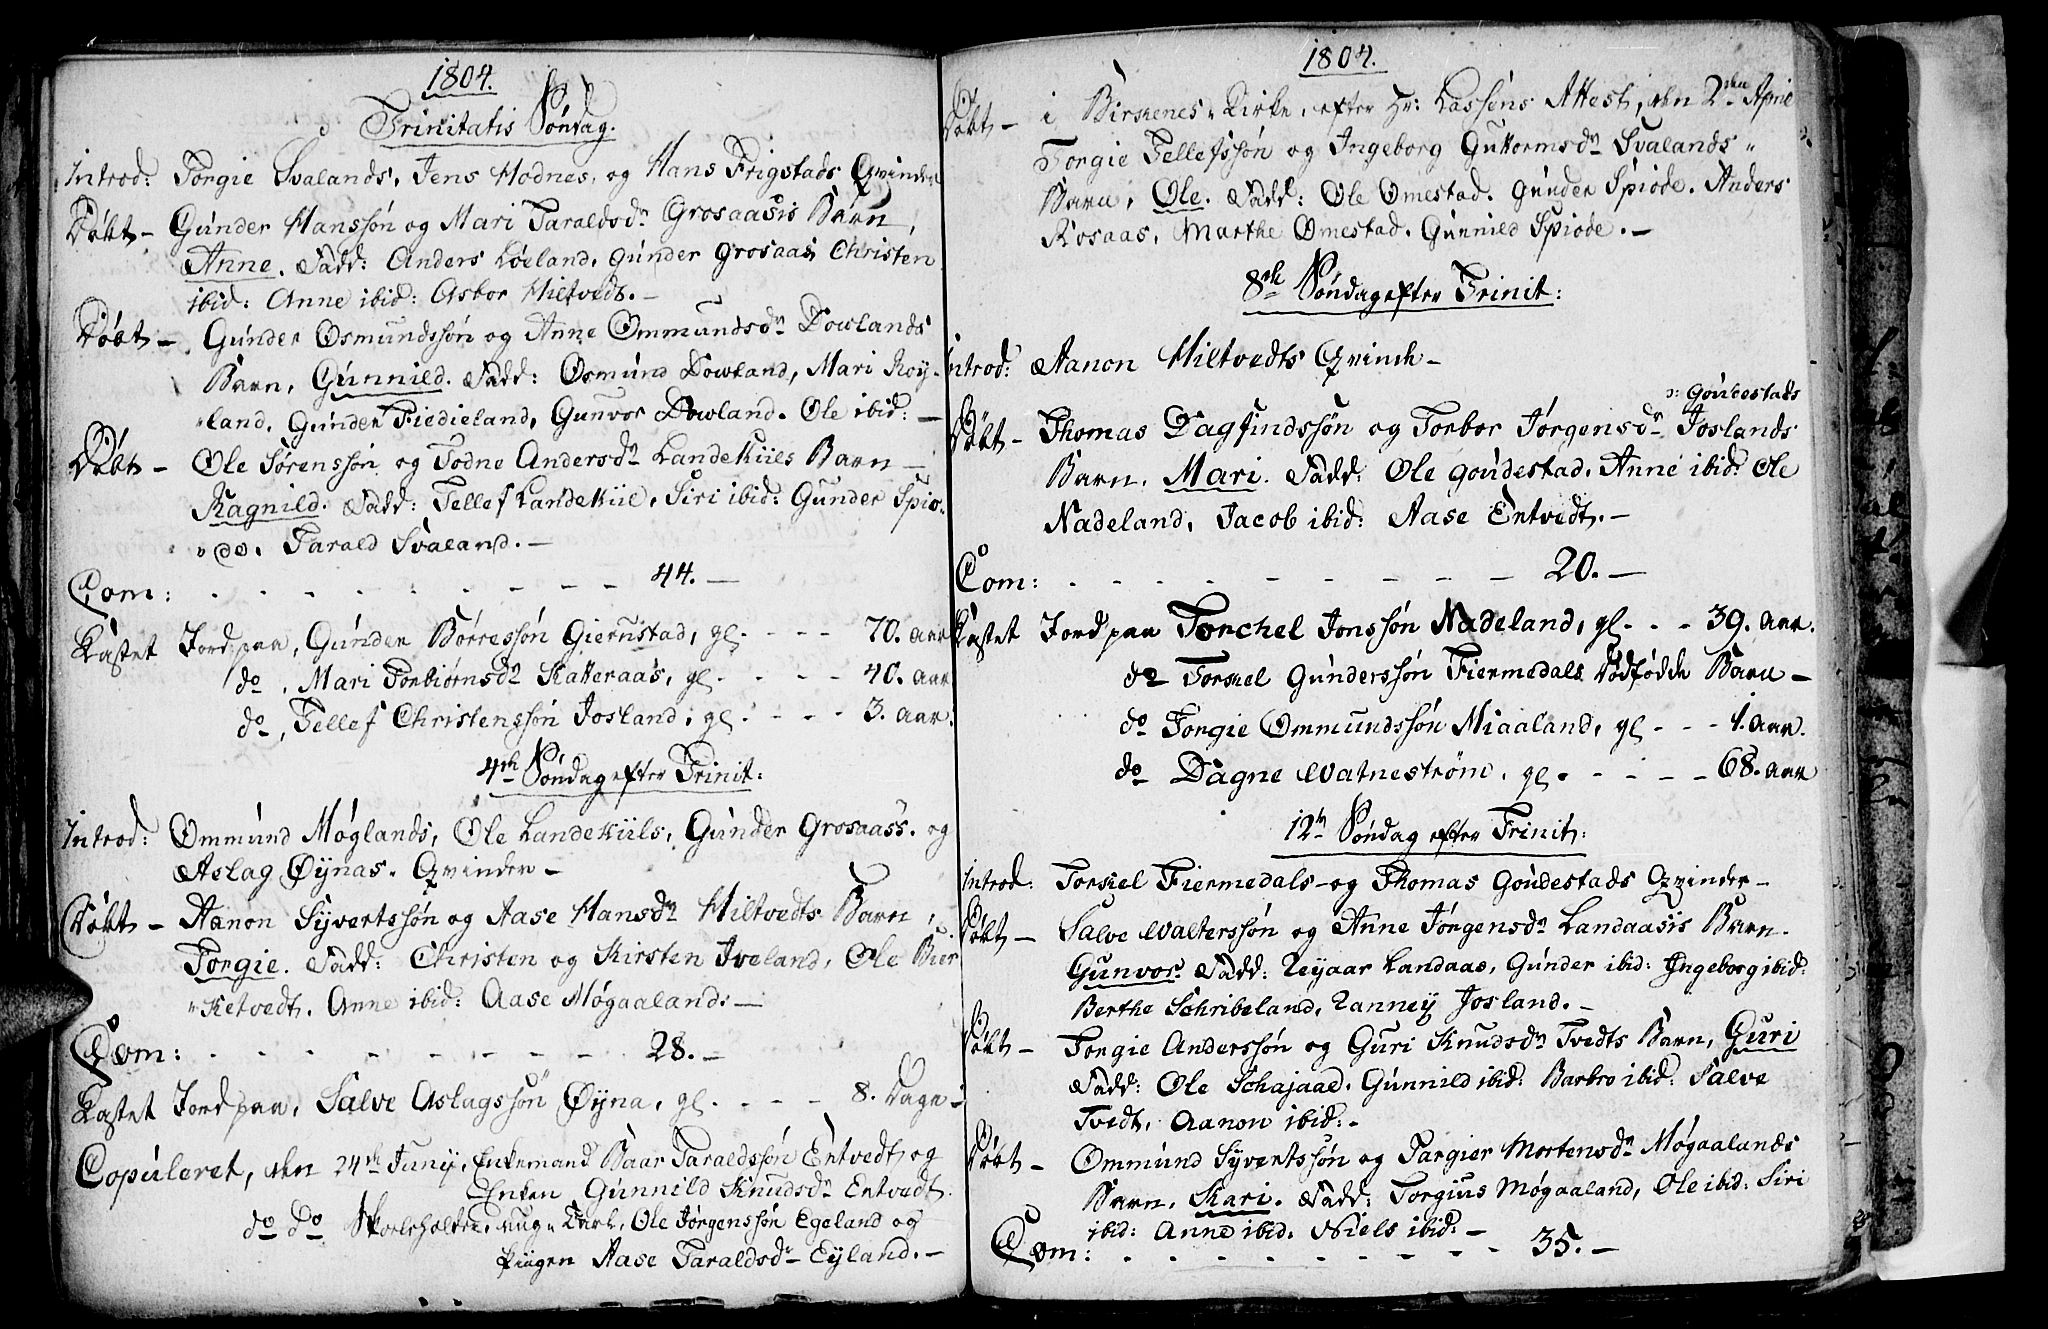 1804.
Trinitatis Søndag.
Introd: Torgie Svalands, Jens Hodnes, og Hans Frigstads Qvinder
Døbt – Gunder Hanssøn og Mari Taraldsdr Grosaasis Barn,
Anne. Fadd: Anders Løeland, Gunder Grosaas, Christen
ibid: Anne ibid: Asbor Hiltvedt. –
Døbt – Gunder Osmundssøn og Anne Ommundsdr Dowlands
Barn, Gunnild. Fadd: Osmund Dowland, Mari Røy-
land, Gunder Fiedieland, Gunvor Dowland. Ole ibid: –
Døbt – Ole Sørenssøn og Todne Andersdr Landekiils Barn –
Ragnild. Fadd: Tellef Landekiil, Siri ibid: Gunder Spio-
de. Tarald Svaland. –
Com: - - - - - - - 44. –
Kastet Jord paa, Gunder Børressøn Giernstad, gl. - - - 70. aar
do, Mari Torbiørnsdr Katteraas, gl. - - - 40. aar
do, Tellef Christenssøn Josland, gl. - - - 3. aar.
4de Søndag efter Trinit:
Introd: Ommund Møglands, Ole Landekiils, Gunder Grosaass. og
Aslag Øynas. Qvinder –
Døbt – Aanon Syvertssøn og Aase Hansdr Hiltvedts Barn,
Torgie. Fadd: Christen og Kirsten Iveland, Ole Bier
ketvedt. Anne ibid: Aase Møgaaland. –
Com: - - - - - - - 28. –
Kastet Jord paa, Salve Aslagssøn Øyna, gl. - - - 8. Dage –
Copuleret, den 24de Junij, Enkemand Baar Taraldssøn Entvedt og
Enken Gunnild Knudsdr Entvedt.
do do Skoleholder, ung Karl, Ole Jørgenssøn Egeland og
Piigen Aase Taraldsdr Eyland. –
1804.
Døbt – i Birkenes Kirke, efter Hr: Lassens Attest, den 2den April
Torgie Tellefssøn og Ingeborg Guttormsdr Svalands
Barn, Ole. Fadd: Ole Omestad. Gunder Spiode. Anders
Rosaas, Marthe Omestad. Gunnild Spiode. –
8de Søndag efter Trinit:
Introd: Aanon Hiltvedts Qvinde –
ɔ: Goudestads
Døbt – Thomas Dagfindssøn og Torbor Jørgensdr Joslands
Barn. Mari. Fadd: Ole Goudestad. Anne ibid: Ole
Nadeland, Jacob ibid: Aase Entvedt. –
Com: - - - - - - - - 20. –
Kastet Jord paa Torchel Jonssøn Nadeland, gl. - - 39. aar.
do Torkel Gunderssøn Fiermedals Dødfødde Barn –
do Torgie Ommundssøn Miaaland, gl - - - 1. aar.
do Dagne Watnestrøm, gl. - - - - 68. aar
12te Søndag efter Trinit:
Introd: Torkel Fiermedals og Thomas Goudestads Qvinder –
Døbt – Salve Walterssøn og Anne Jørgensdr Landaasis Barn.
Gunvor. Fadd: Reyaar Landaas, Gunder ibid: Ingeborg ibid:
Berthe Schribeland, Ranney Josland. –
Døbt – Torgie Anderssøn og Guri Knudsdr Tvedts Barn, Guri
Fadd: Ole Schajaad. Gunnild ibid: Barbro ibid: Salve
Tvedt, Aanon ibid: –
Døbt – Ommund Syvertssøn og Targier Mortensdr Møgaalands
Barn, Kari. Fadd: Torgius Møgaaland, Ole ibid: Siri
ibid: Anne ibid. Niels ibid: –
Com: - - - - - - - - 35. –